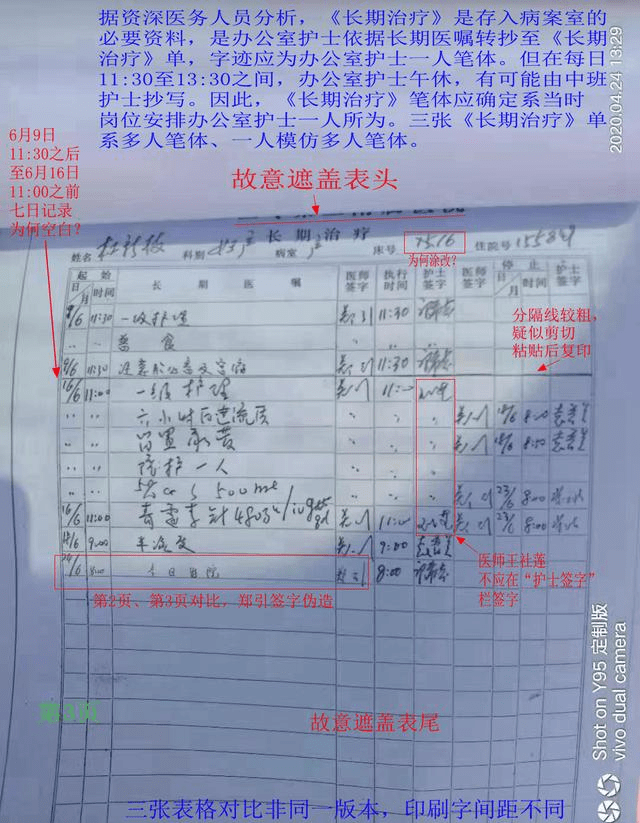 据资深医务人员分析，《长期治疗》是存入病案室的
必要资料，是办公室护士依据长期医嘱转抄至《长期
治疗》单，字迹应为办公室护士一人笔体。但在每日
11:30至13:30之间，办公室护士午休，有可能由中班
护士抄写。因此，《长期治疗》笔体应确定系当时
岗位安排办公室护士一人所为。三张《长期治疗》单
系多人笔体、一人模仿多人笔体。
2020.04.24 13:29
6月9日
11:30之后
至6月16日
11:00之前
七日记录
为何空白？
故意遮盖表头
长期治疗
姓名 科别 妇产 病室 产 床号 7516 住院号 155849
为何涂改？
起始 长期医嘱 医师签字 执行时间 护士签字 医师签字 停止 护士签字
日/月 时间 日/月 时间
9/6 11:30 一级护理 11:30
〃 〃 普食
9/6 11:30 11:30
16/6 11:00 一级护理 11:00
〃 〃 六小时后进流质 〃 8:00
〃 〃 留置尿管 〃 8:00
〃 〃 陪护一人 〃
〃 〃 500ml 〃 23/6 8:00
16/6 11:00 青霉素针480万 11:00 23/6 8:00
18/6 9:00 半流质 9:00
24/6 8:00 今日出院 郑引 8:00
分隔线较粗，
疑似剪切
粘贴后复印
医师王社莲
不应在“护士签字”
栏签字
第2页、第3页对比，郑引签字伪造
第3页
故意遮盖表尾
三张表格对比非同一版本，印刷字间距不同
Shot on Y95 定制版
vivo dual camera